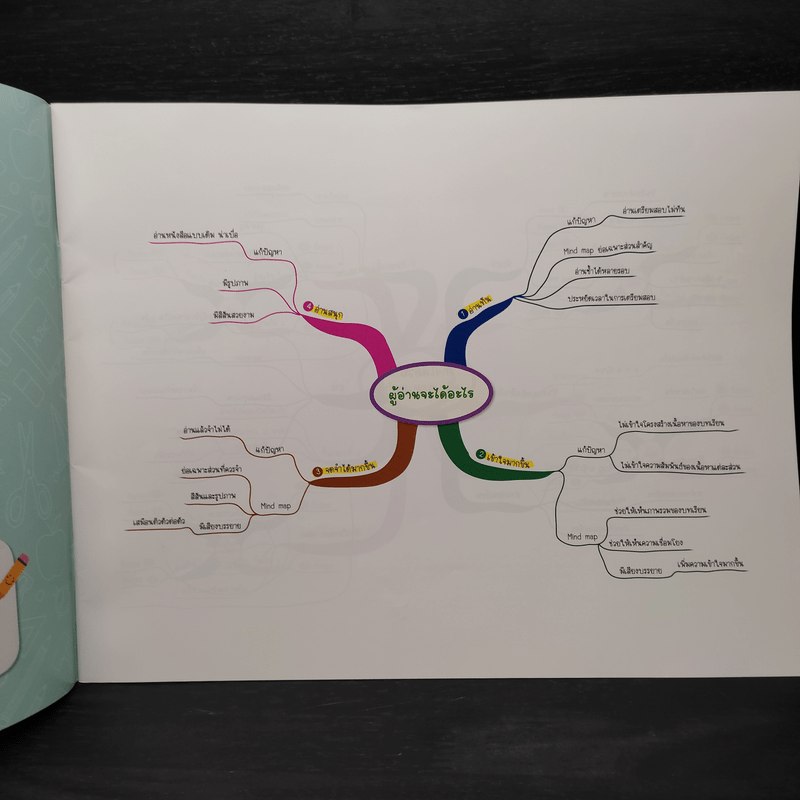 ผู้อ่านจะได้อะไร
1 อ่านทัน
แก้ปัญหา
อ่านเตรียมสอบไม่ทัน
Mind map ย่อเฉพาะส่วนสำคัญ
อ่านซ้ำได้หลายรอบ
ประหยัดเวลาในการเตรียมสอบ
2 เข้าใจมากขึ้น
แก้ปัญหา
ไม่เข้าใจโครงสร้างเนื้อหาของบทเรียน
ไม่เข้าใจความสัมพันธ์ของเนื้อหาแต่ละส่วน
Mind map
ช่วยให้เห็นภาพรวมของบทเรียน
ช่วยให้เห็นความเชื่อมโยง
มีเสียงบรรยาย
เพิ่มความเข้าใจมากขึ้น
3 จดจำได้มากขึ้น
แก้ปัญหา
อ่านแล้วจำไม่ได้
Mind map
ย่อเฉพาะส่วนที่ควรจำ
สีสันและรูปภาพ
มีเสียงบรรยาย
เสมือนติวตัวต่อตัว
4 อ่านสนุก
แก้ปัญหา
อ่านหนังสือแบบเดิม น่าเบื่อ
มีรูปภาพ
มีสีสันสวยงาม